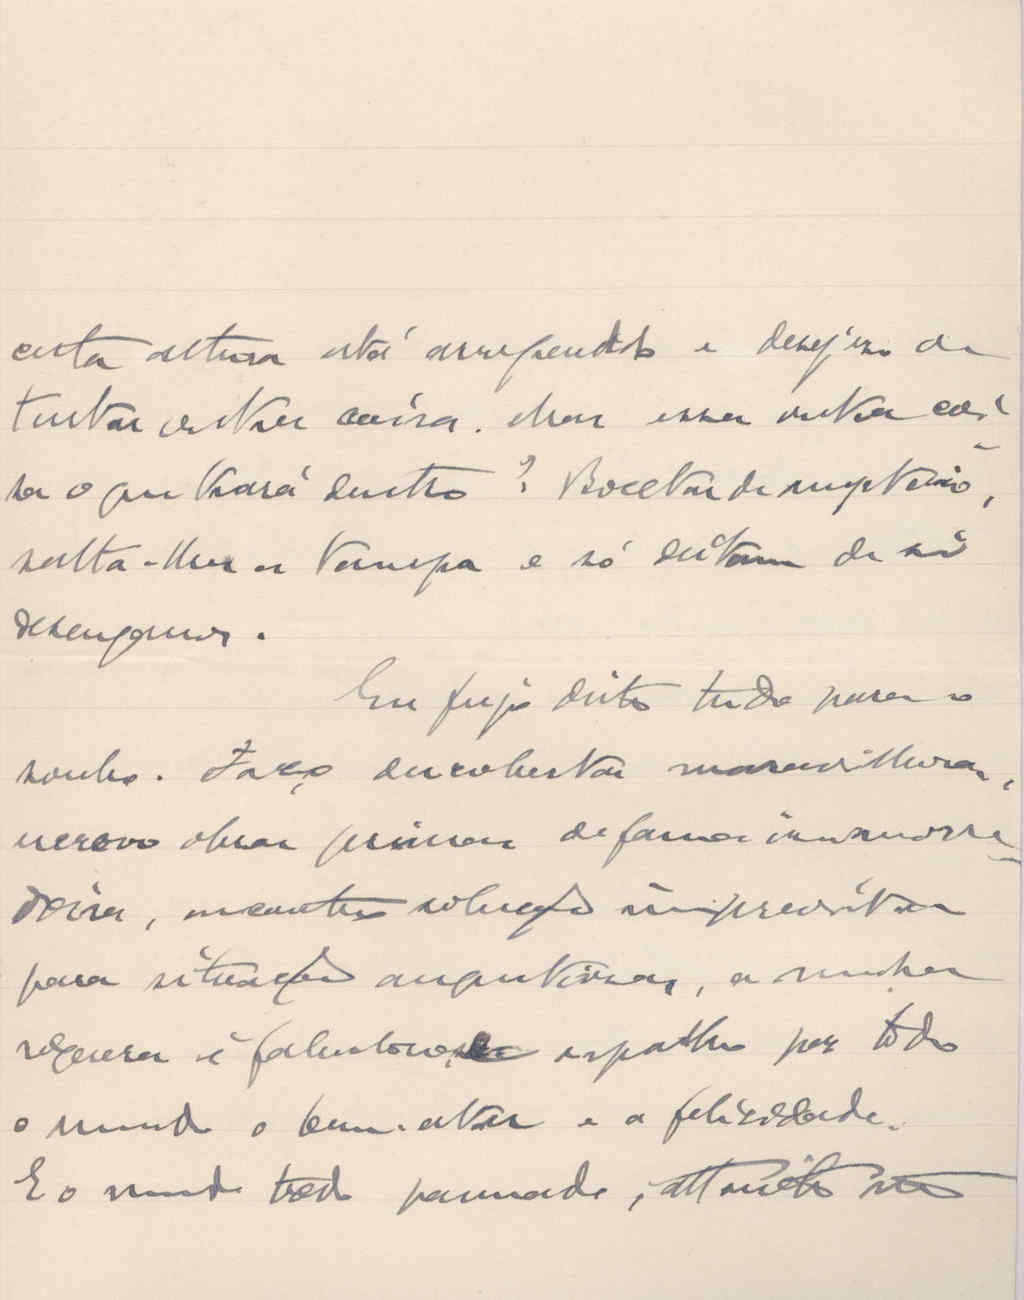 esta altura está arrependido e desejoso de
tentar outra coisa. Mas essa outra coi-
sa o que trará dentro? Bocetas de mysterio,
salta-lhes a tampa e só deitam de si
desenganos.
Eu fujo disto tudo para o
sonho. Faço descobertas maravilhosas,
escrevo obras primas de fama immorre-
doira, encontro solução imprevista
para situações angustiosas, a minha
riqueza é fabulosa, espalho por todo
o mundo o bem-estar e a felicidade.
E o mundo todo pasmado, attonito